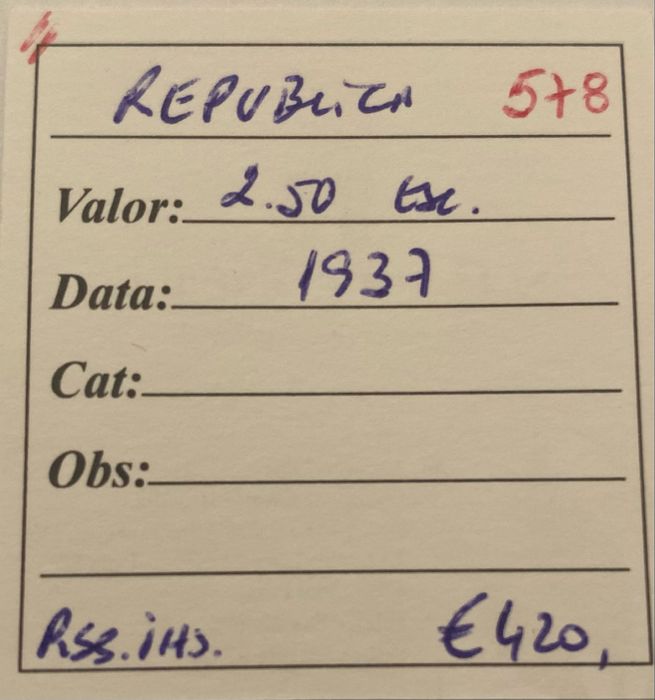 REPUBLICA 578
Valor: 2.50 Esc.
Data: 1937
Cat:
Obs:
€420,